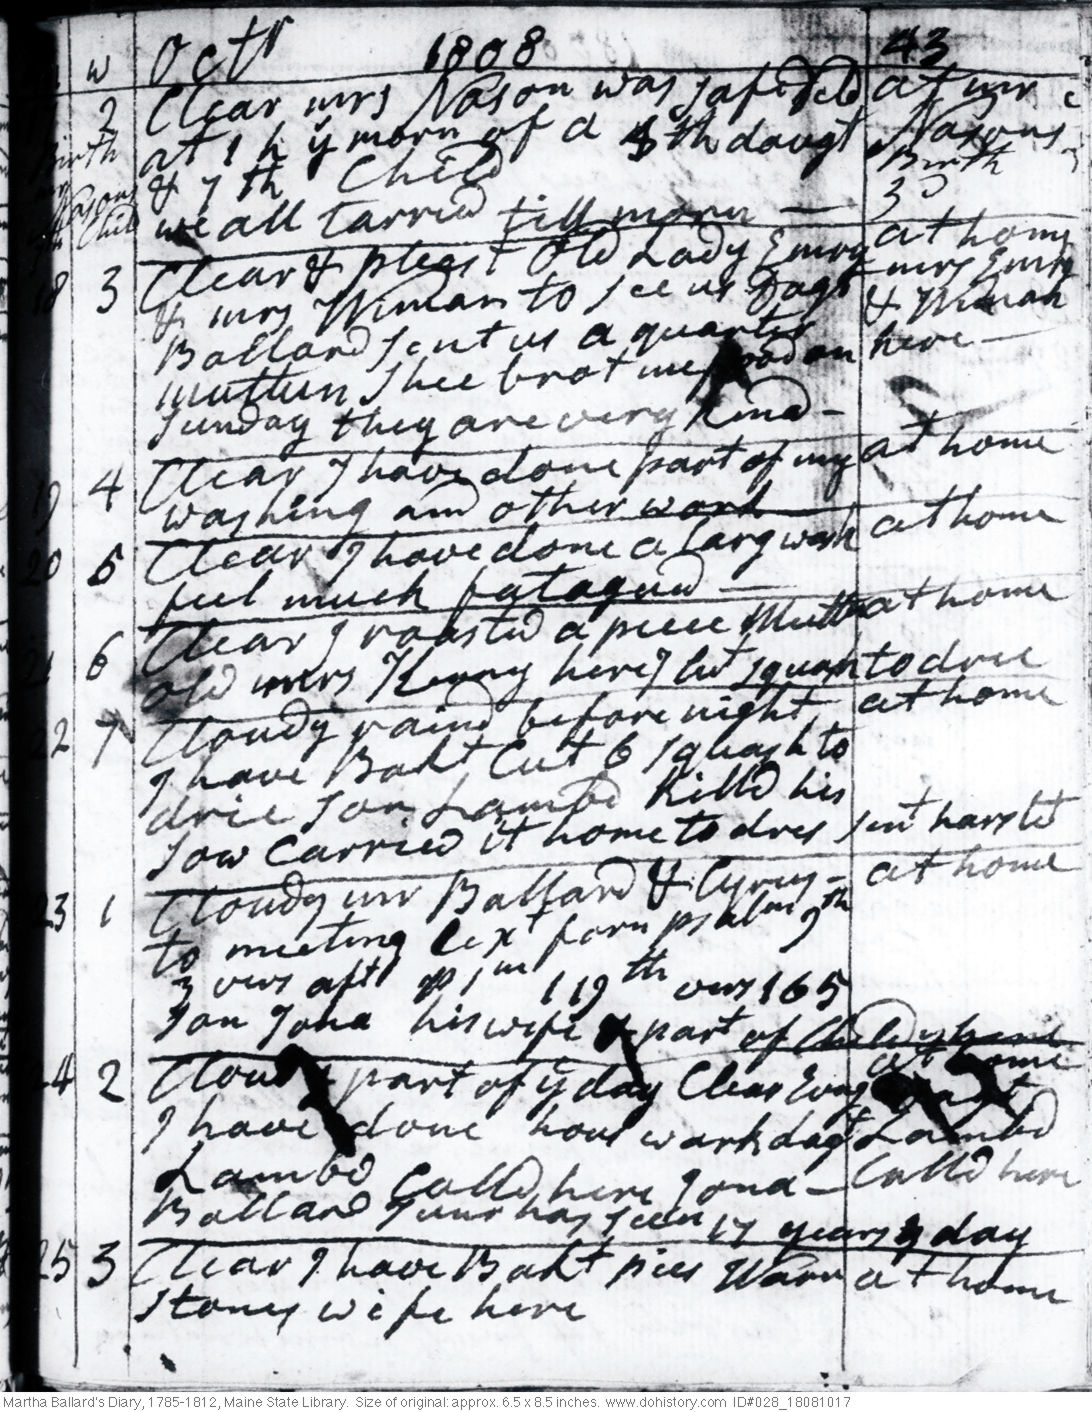 w Octr 1808 43
2 Clear mrs Nason was safe Deld at mr
Birth at 1 h ÿ morn of a 5th daugt Nasons
mrs Nasons & 7th Child Birth
7th Child we all tarried till morn — 3 D
18 3 Clear & pleast Old Lady Emry at home
& mrs Wiman to see us Dagt mrs Emry
Ballard sent us a quarter & Wiman
muttun shee brot me food on here —
sunday they are very kind —
19 4 Clear I have done part of my at home
washing and other work
20 5 Clear I have done a larg wash at home
feel much fatagud —
21 6 Clear I roasted a peece Mutton at home
old mrs Kenny here I cut squash to drie
22 7 Cloudy raind before night at home
I have Bakt Cut 6 squash to
drie son Lambd killd his
sow Carried it home to dres sent harslet
23 1 Cloudy mr Ballard & Cyrus — at home
to meeting text forn psalm 9th
3 vers aft psm 119th vers 165
son Jona his wife & part of Children here
24 2 Cloudy part of ÿ day Clear Evng at home
I have done hous work dagt Lambd
Lambd Calld here Jona — Calld here
Ballard Junr has seen 17 years ÿ day
25 3 Clear I have Bakt pies Warn at home
Stones wife here
Martha Ballard's Diary, 1785-1812, Maine State Library. Size of original: approx. 6.5 x 8.5 inches. www.dohistory.com ID#028_18081017